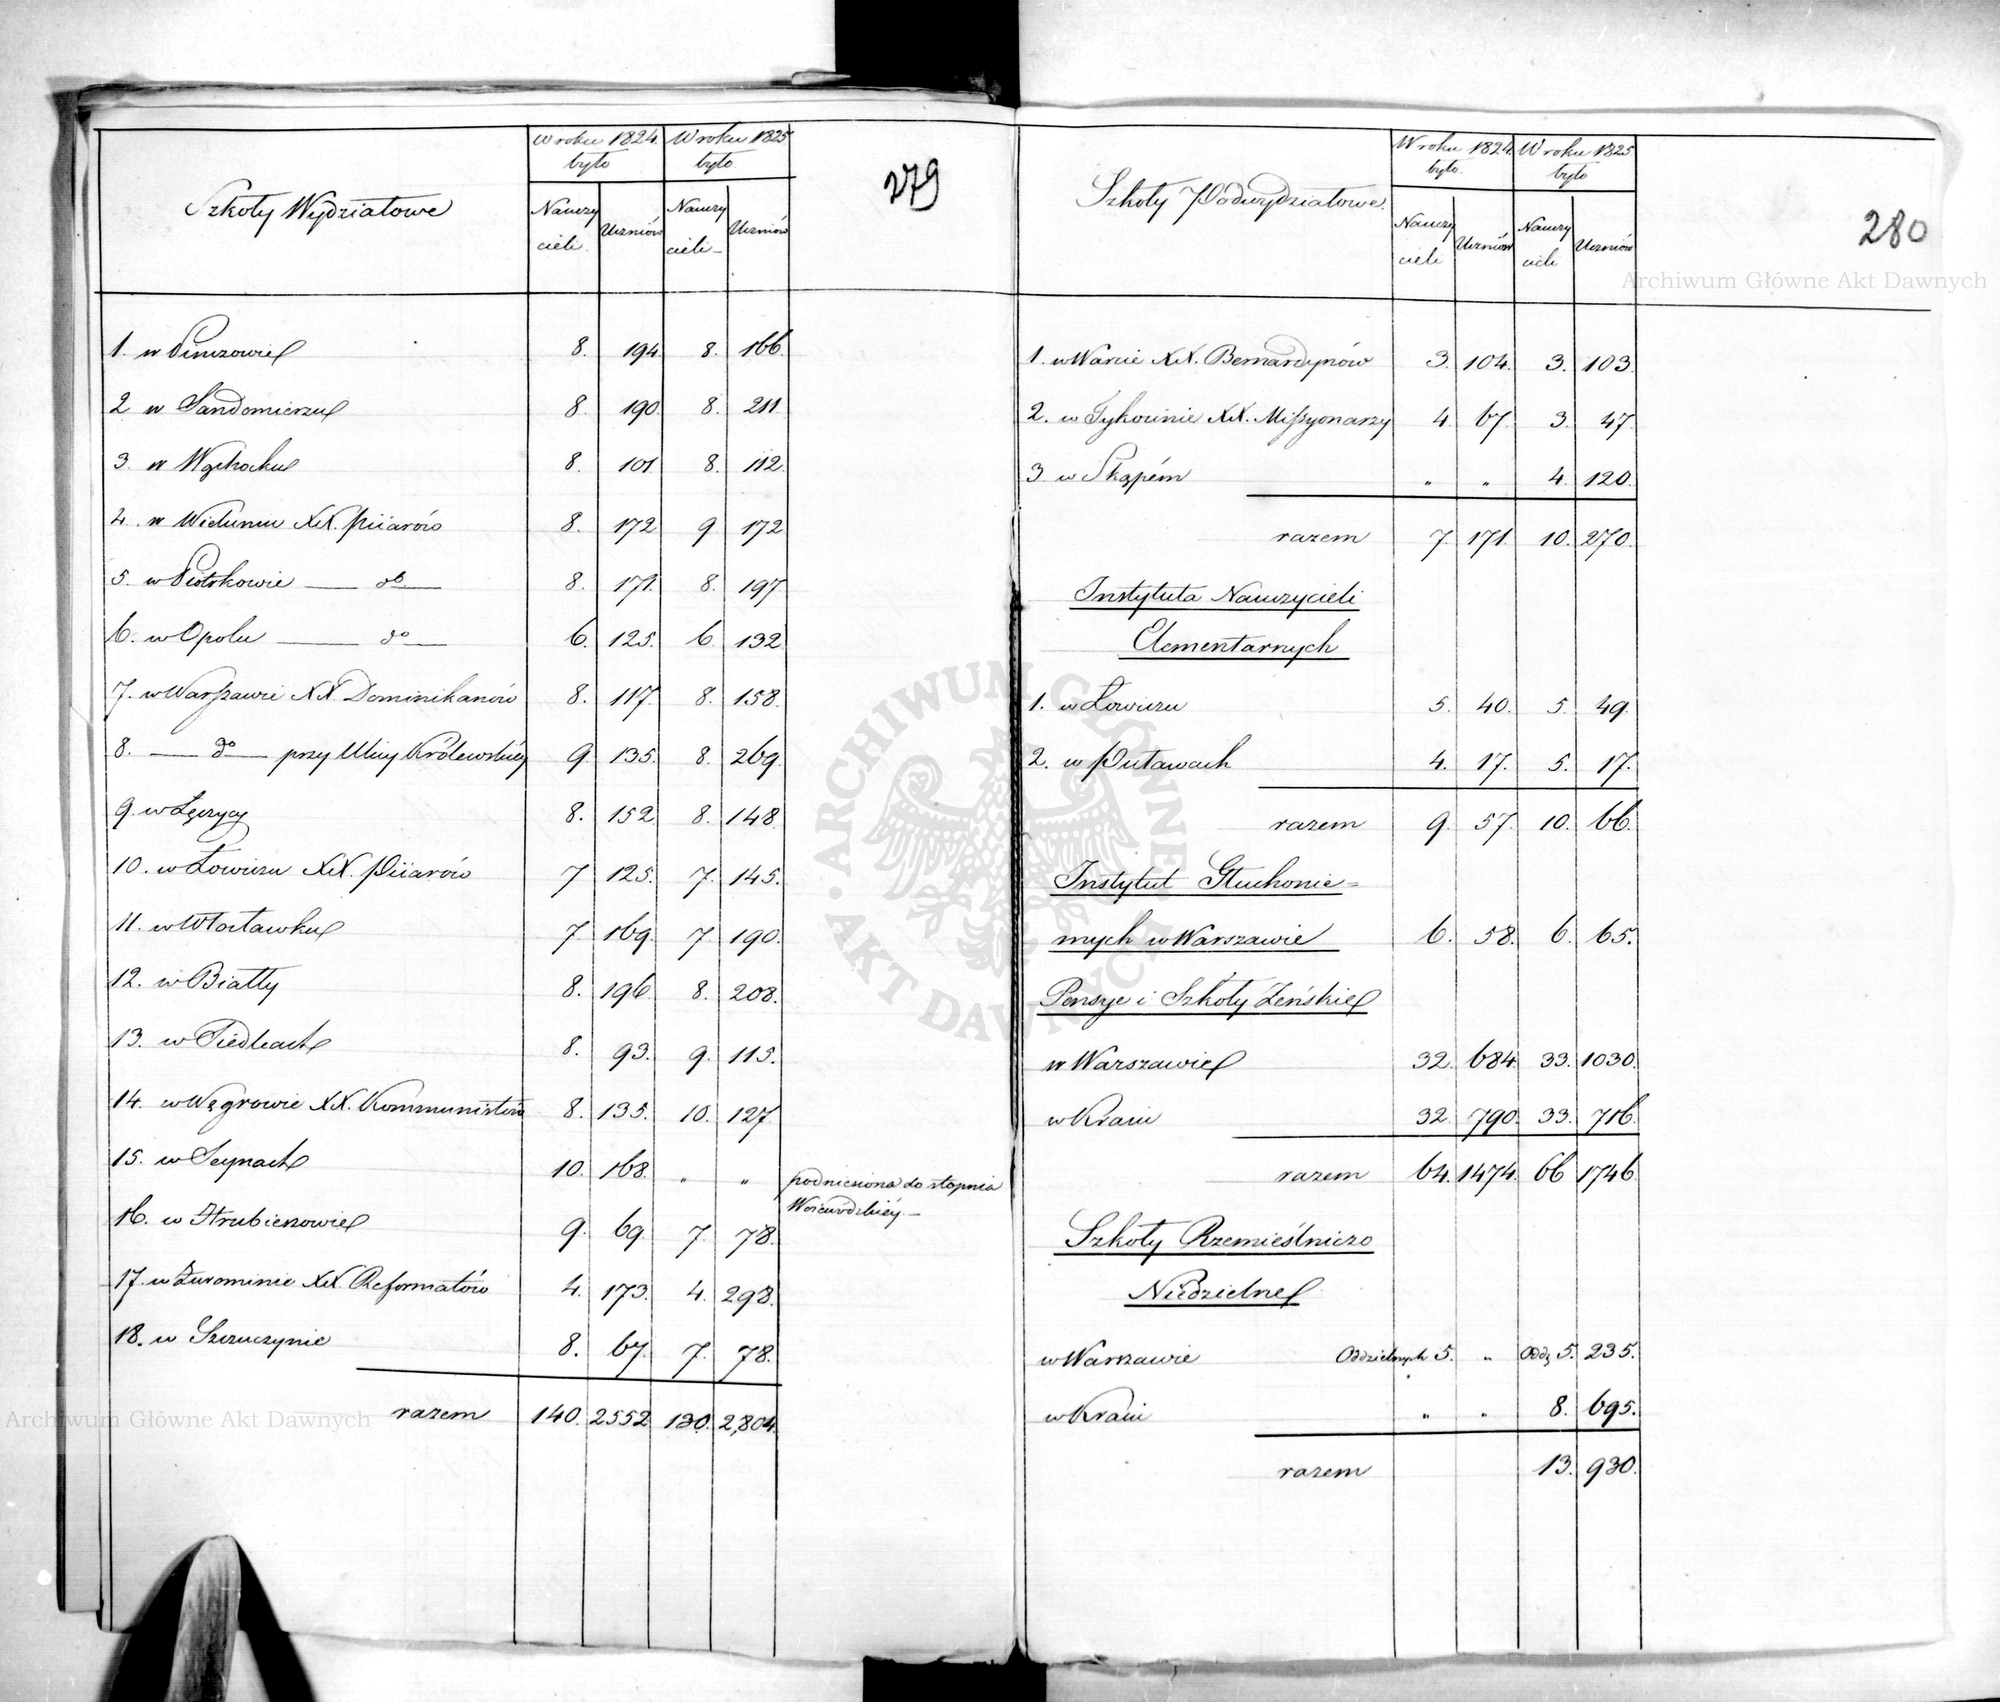 Szkoły Wydziałowe
W roku 1824. było
W roku 1825 było
Nauczycieli.
Uczniów
Nauczycieli
Uczniów
279
1. w Pinczowie 8. 194. 8. 166.
2 w Sandomierzu 8. 190. 8. 211
3. w Wąchocku 8. 101 8. 112.
4. w Wieluniu XX. Piiarów 8. 172 9 172
5. w Piotrkowie — do — 8. 171. 8. 197.
6. w Opolu — do — 6. 125. 6. 132
7. w Warszawie XX Dominikanów 8. 117. 8. 158.
8. — do — przy Ulicy Królewskiéy 9. 135. 8. 269.
9. w Łęczycy 8. 152. 8. 148.
10. w Łowiczu XX. Piiarów 7 125. 7. 145.
11. w Włocławku 7. 169. 7 190.
12. w Białły 8. 196. 8. 208.
13. w Siedlcach 8. 93. 9. 113.
14. w Węgrowie XX. Kommunistów 8. 135. 10. 127.
15. w Seynach 10. 168. " " podniesiona do stopnia
Woiewódzkiéy. —
16. w Hrubieszowie 9. 69. 7. 78.
17. w Żurominie XX. Reformatów 4. 173. 4. 298.
18. w Szczuczynie 8. 67. 7. 78.
razem 140. 2552 130. 2,804.
Szkoły Podwydziałowe.
W roku 1824. było.
W roku 1825 było
Nauczycieli
Uczniów
Nauczycieli
Uczniów
280
1. w Warcie XX. Bernardynów 3. 104. 3. 103.
2. w Tykocinie XX. Missyonarzy 4. 67. 3. 47.
3 w Skąpém " " 4. 120.
razem 7. 171. 10. 270.
Instytuta Nauczycieli
Elementarnych
1. w Łowiczu 5. 40. 5. 49.
2. w Puławach 4. 17. 5. 17.
razem 9. 57. 10. 66.
Instytut Głuchonie=
mych w Warszawie 6. 58. 6. 65.
Pensye i Szkoły Żeńskie
w Warszawie 32. 684. 33. 1030.
w Kraiu 32. 790. 33. 716.
razem 64. 1474. 66 1746.
Szkoły Rzemieślniczo
Niedzielne
w Warszawie Oddzielnych 5. " Oddz 5. 235.
w Kraiu " " 8. 695.
razem 13. 930.
Archiwum Główne Akt Dawnych
Archiwum Główne Akt Dawnych
ARCHIWUM GŁÓWNE AKT DAWNYCH